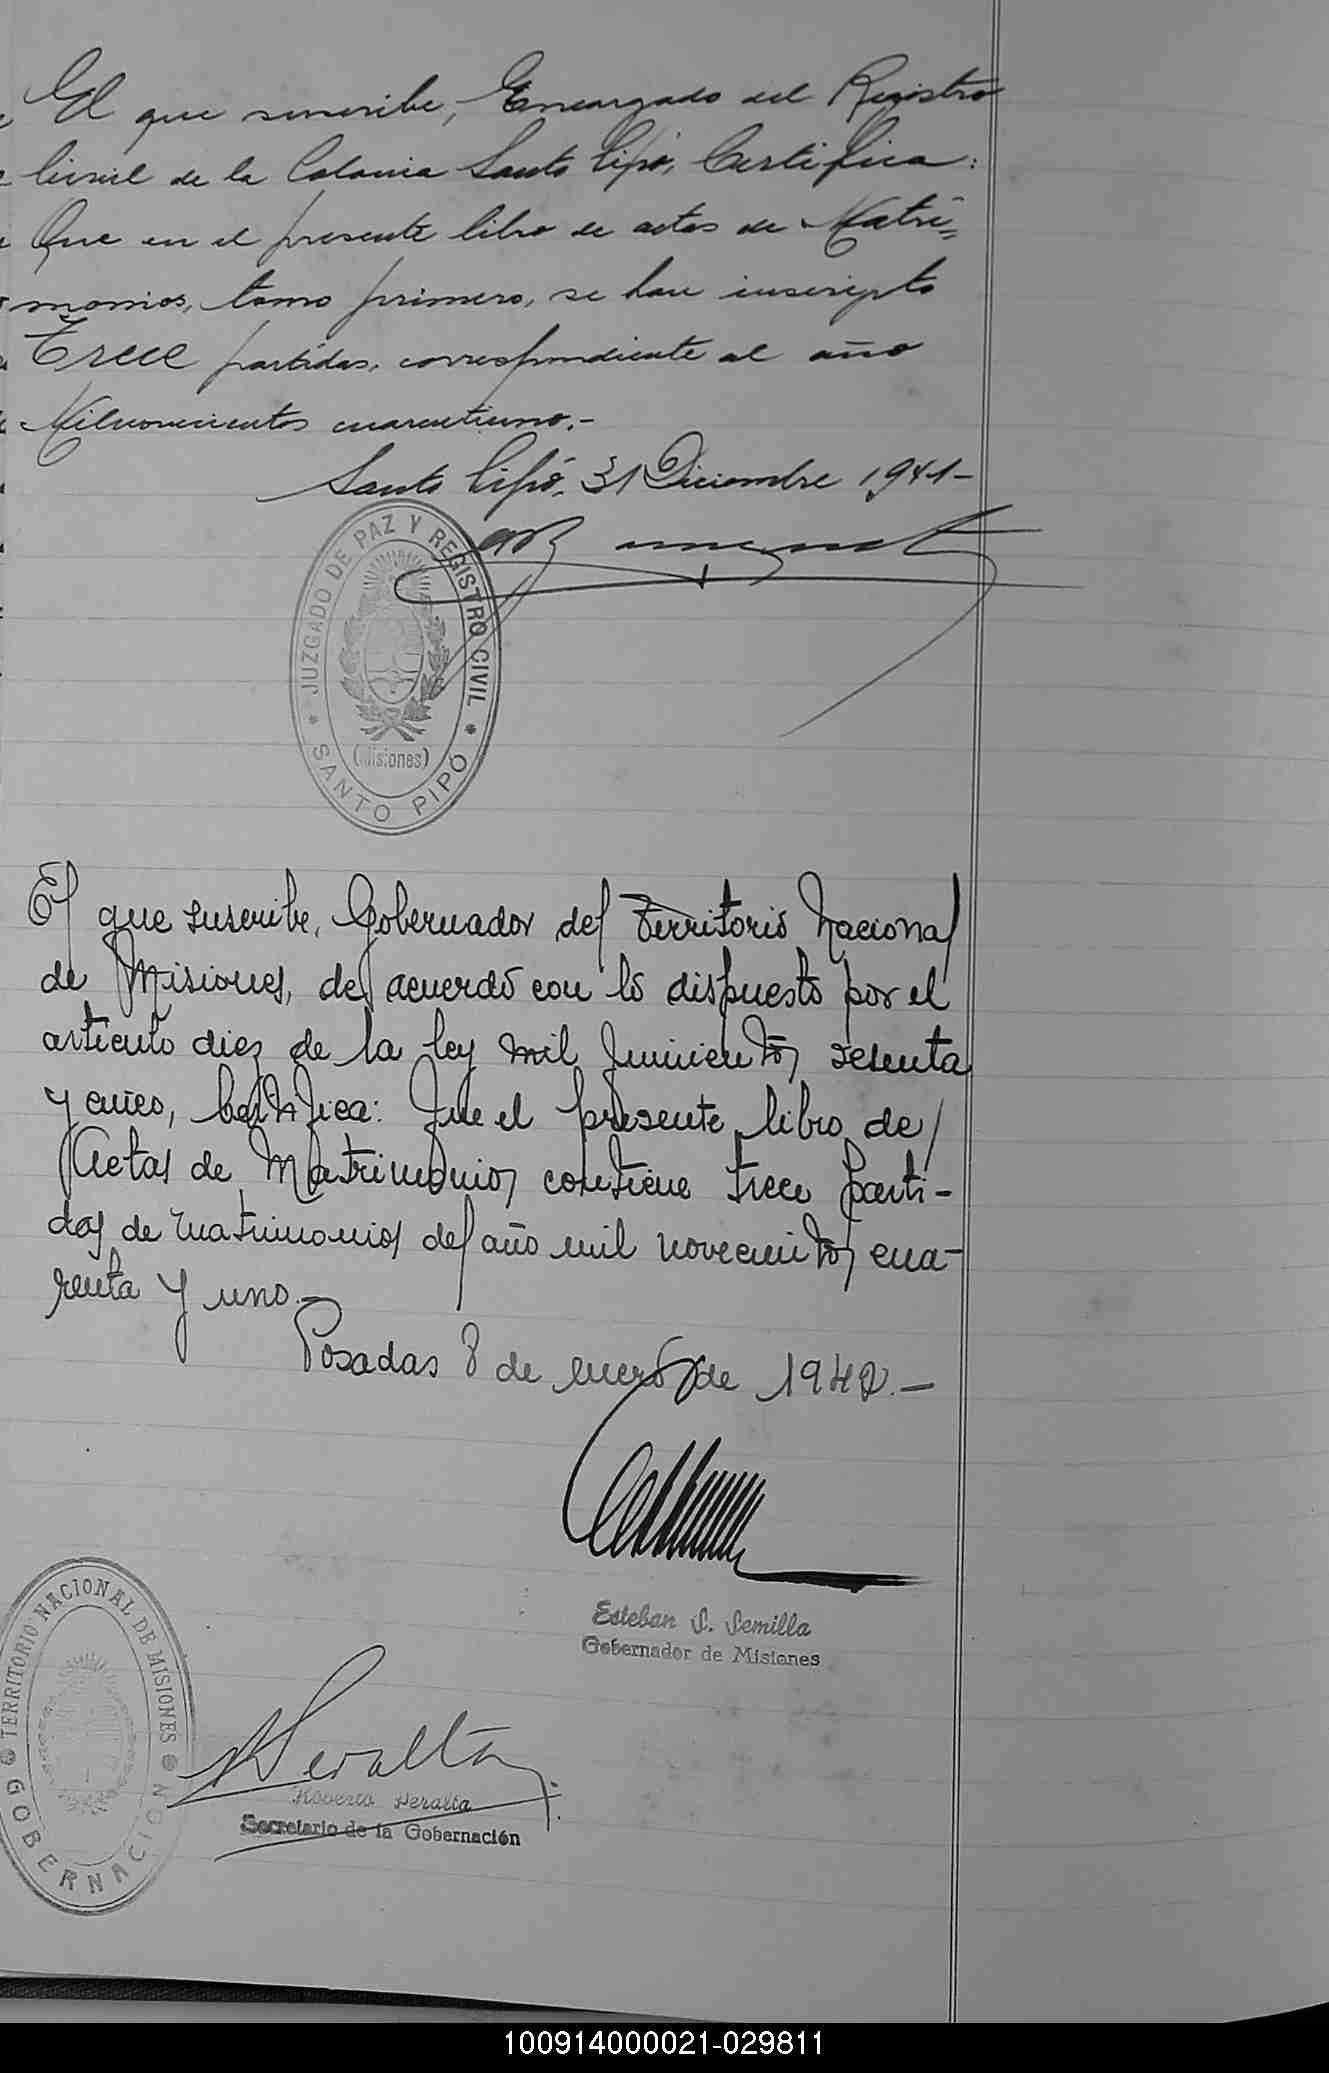 El que suscribe, Encargado del Registro
Civil de la Colonia Santo Pipó, Certifica:
Que en el presente libro de actas de Matri=
monios, tomo primero, se han inscripto
Trece partidas, correspondiente al año
Milnovecientos cuarentiuno.-
Santo Pipó, 31 Diciembre 1941-
JUZGADO DE PAZ Y REGISTRO CIVIL
(Misiones)
* SANTO PIPÓ *
El que suscribe, Gobernador del Territorio Nacional
de Misiones, de acuerdo con lo dispuesto por el
artículo diez de la ley mil quinientos sesenta
y cinco, Certifica: Que el presente libro de
Actas de Matrimonios contiene trece parti-
das de matrimonios del año mil novecientos cua-
renta y uno.-
Posadas 8 de enero de 1942.-
Esteban S. Semilla
Gobernador de Misiones
TERRITORIO NACIONAL DE MISIONES
GOBERNACION
Peralta
Roberto Peralta
Secretario de la Gobernación
100914000021-029811